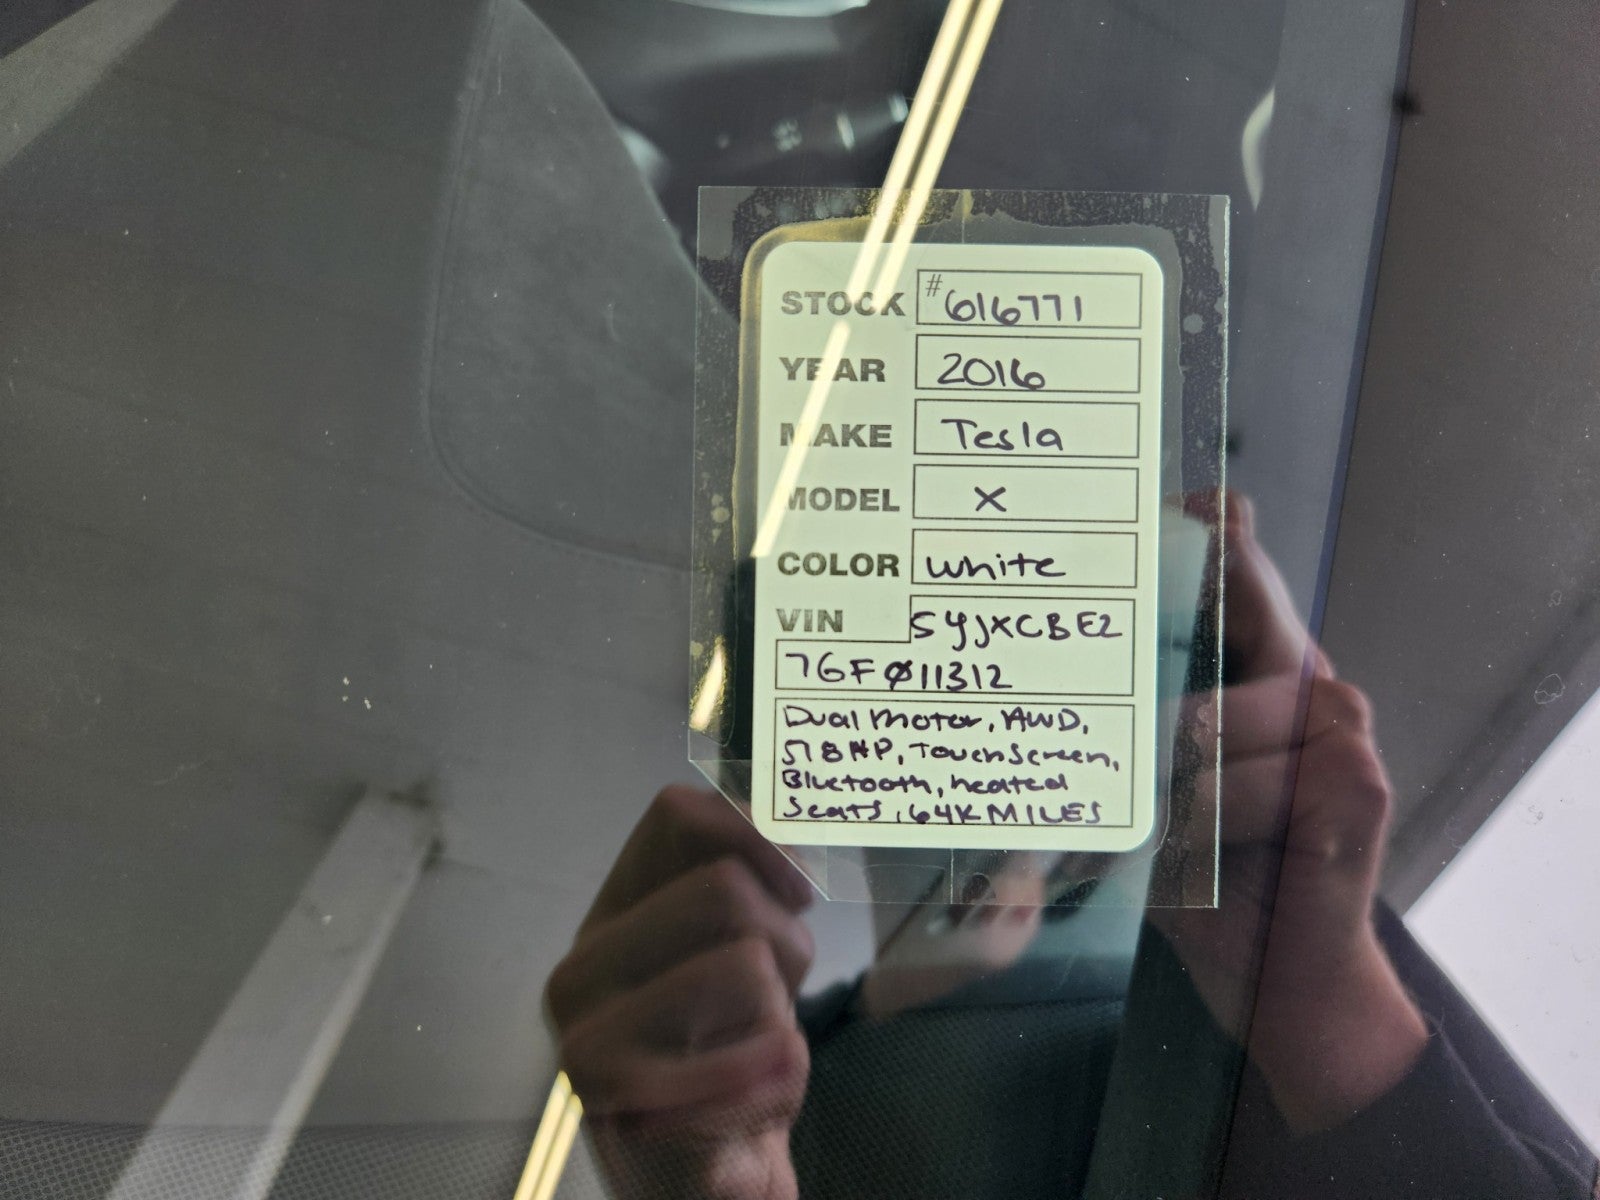 STOCK #616771
YEAR 2016
MAKE Tesla
MODEL X
COLOR white
VIN 5YJXCBE2
7GFØ11312
Dual Motor, AWD,
518HP, Touchscreen,
Bluetooth, heated
Seats, 64K MILES